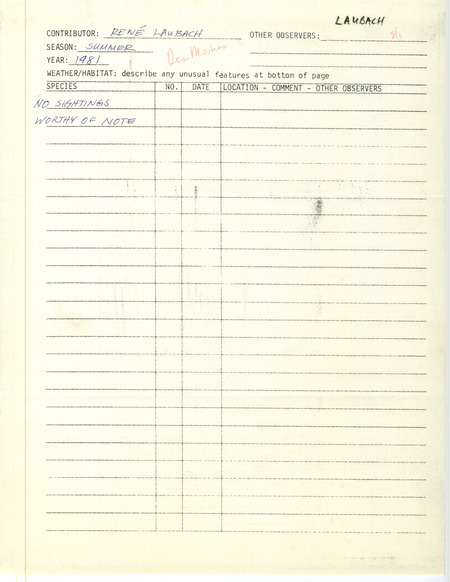 LAUBACH
CONTRIBUTOR: RENÉ LAUBACH OTHER OBSERVERS: 8/1
SEASON: SUMMER Des Moines
YEAR: 1981
WEATHER/HABITAT: describe any unusual features at bottom of page
SPECIES NO. DATE LOCATION - COMMENT - OTHER OBSERVERS
NO SIGHTINGS
WORTHY OF NOTE